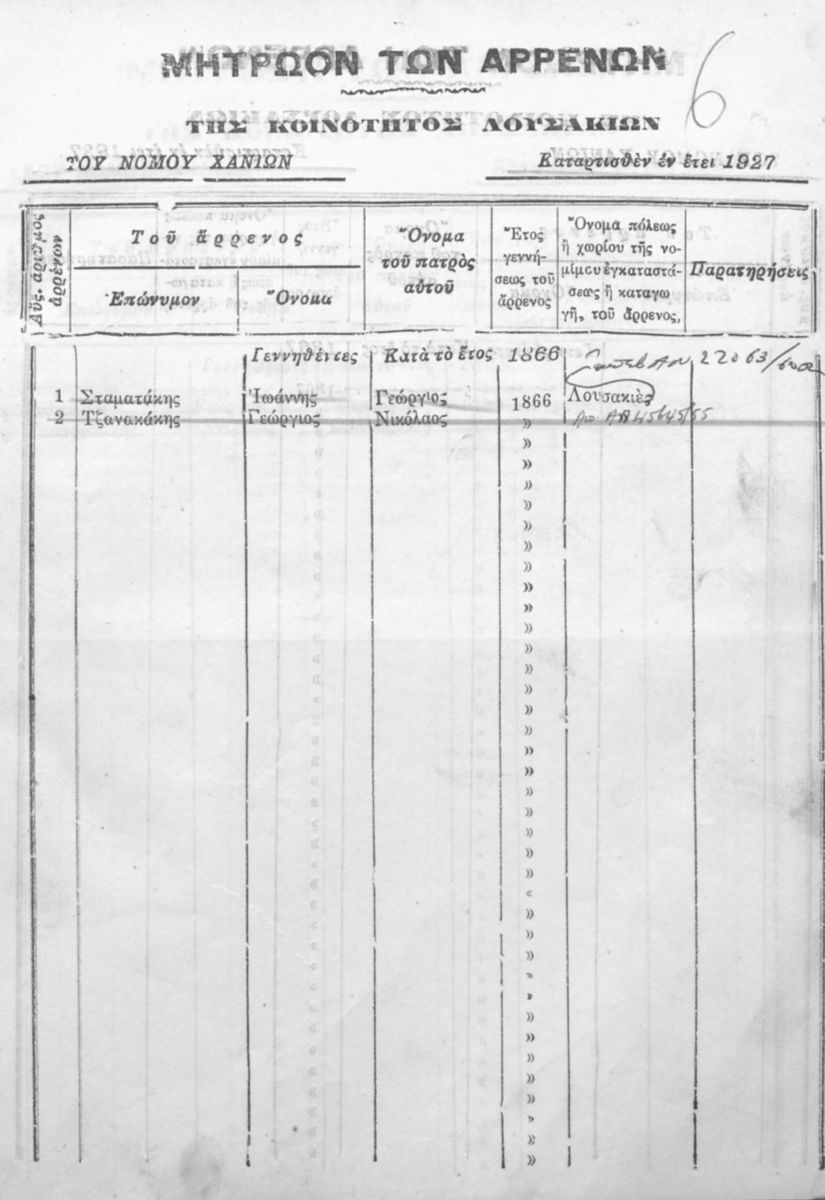 6
ΜΗΤΡΩΟΝ ΤΩΝ ΑΡΡΕΝΩΝ
ΤΗΣ ΚΟΙΝΟΤΗΤΟΣ ΛΟΥΣΑΚΙΩΝ
ΤΟΥ ΝΟΜΟΥ ΧΑΝΙΩΝ Καταρτισθὲν ἐν ἔτει 1927
Αὔξ. ἀριθμὸς
ἀρρένον
Τοῦ ἄρρενος
Ἐπώνυμον Ὄνομα
Ὄνομα
τοῦ πατρὸς
αὐτοῦ
Ἔτος
γεννή-
σεως τοῦ
ἄρρενος
Ὄνομα πόλεως
ἢ χωρίου τῆς νο-
μίμου ἐγκαταστά-
σεως ἢ καταγω
γῆς, τοῦ ἄρρενος,
Παρατηρήσεις
Γεννηθέντες Κατὰ τὸ ἔτος 1866
22063/
1 Σταματάκης Ἰωάννης Γεώργιος 1866 Λουσακιὲς
2 Τζανακάκης Γεώργιος Νικόλαος »
»
»
»
»
»
»
»
»
»
»
»
»
»
»
»
»
»
»
»
»
»
»
»
«
»
»
»
»
»
»
»
»
»
»
»
»
»